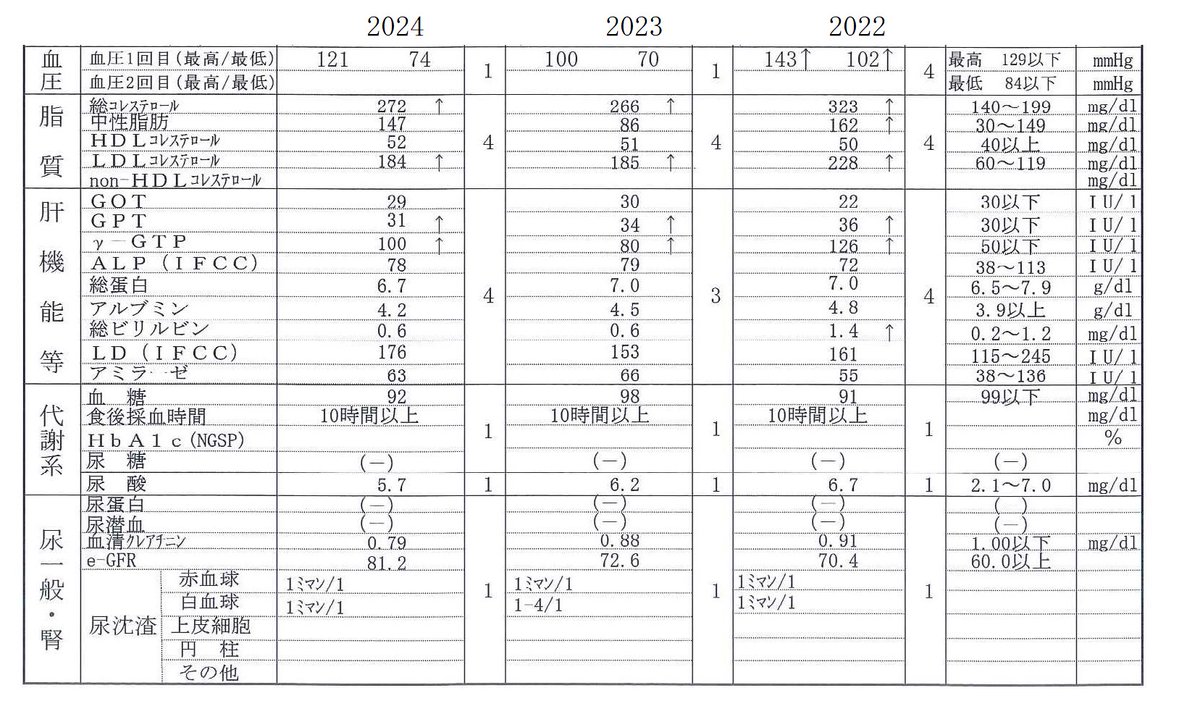 2024 2023 2022
血圧 血圧1回目(最高/最低) 121 74 1 100 70 1 143↑ 102↑ 4 最高 129以下 mmHg
血圧2回目(最高/最低) 最低 84以下 mmHg
脂質 総コレステロール 272 ↑ 4 266 ↑ 4 323 ↑ 4 140～199 mg/dl
中性脂肪 147 86 162 ↑ 30～149 mg/dl
HDLコレステロール 52 51 50 40以上 mg/dl
LDLコレステロール 184 ↑ 185 ↑ 228 ↑ 60～119 mg/dl
non-HDLコレステロール mg/dl
肝機能等 GOT 29 30 22 30以下 IU/l
GPT 31 ↑ 34 ↑ 36 ↑ 30以下 IU/l
γ-GTP 100 ↑ 80 ↑ 126 ↑ 50以下 IU/l
ALP(IFCC) 78 79 72 38～113 IU/l
総蛋白 6.7 4 7.0 3 7.0 4 6.5～7.9 g/dl
アルブミン 4.2 4.5 4.8 3.9以上 g/dl
総ビリルビン 0.6 0.6 1.4 ↑ 0.2～1.2 mg/dl
LD(IFCC) 176 153 161 115～245 IU/l
アミラーゼ 63 66 55 38～136 IU/l
代謝系 血糖 92 98 91 99以下 mg/dl
食後採血時間 10時間以上 1 10時間以上 1 10時間以上 1 mg/dl
HbA1c(NGSP) %
尿糖 (－) (－) (－) (－)
尿酸 5.7 1 6.2 1 6.7 1 2.1～7.0 mg/dl
尿一般・腎 尿蛋白 (－) (－) (－) ( )
尿潜血 (－) (－) (－) (－)
血清クレアチニン 0.79 0.88 0.91 1.00以下 mg/dl
e-GFR 81.2 72.6 70.4 60.0以上
尿沈渣 赤血球 1ミマン/1 1 1ミマン/1 1 1ミマン/1 1
白血球 1ミマン/1 1-4/1 1ミマン/1
上皮細胞
円柱
その他